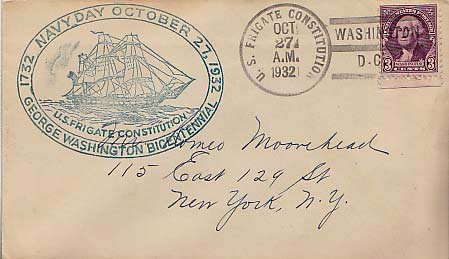 1732 NAVY DAY OCTOBER 27, 1932
U.S. FRIGATE CONSTITUTION
GEORGE WASHINGTON BICENTENNIAL
U. S. FRIGATE CONSTITUTION
OCT
27
A.M.
1932
WASHINGTON
D.C.
3 CENTS 3
Romeo Moorehead
115 East 129 St
New York, N.Y.